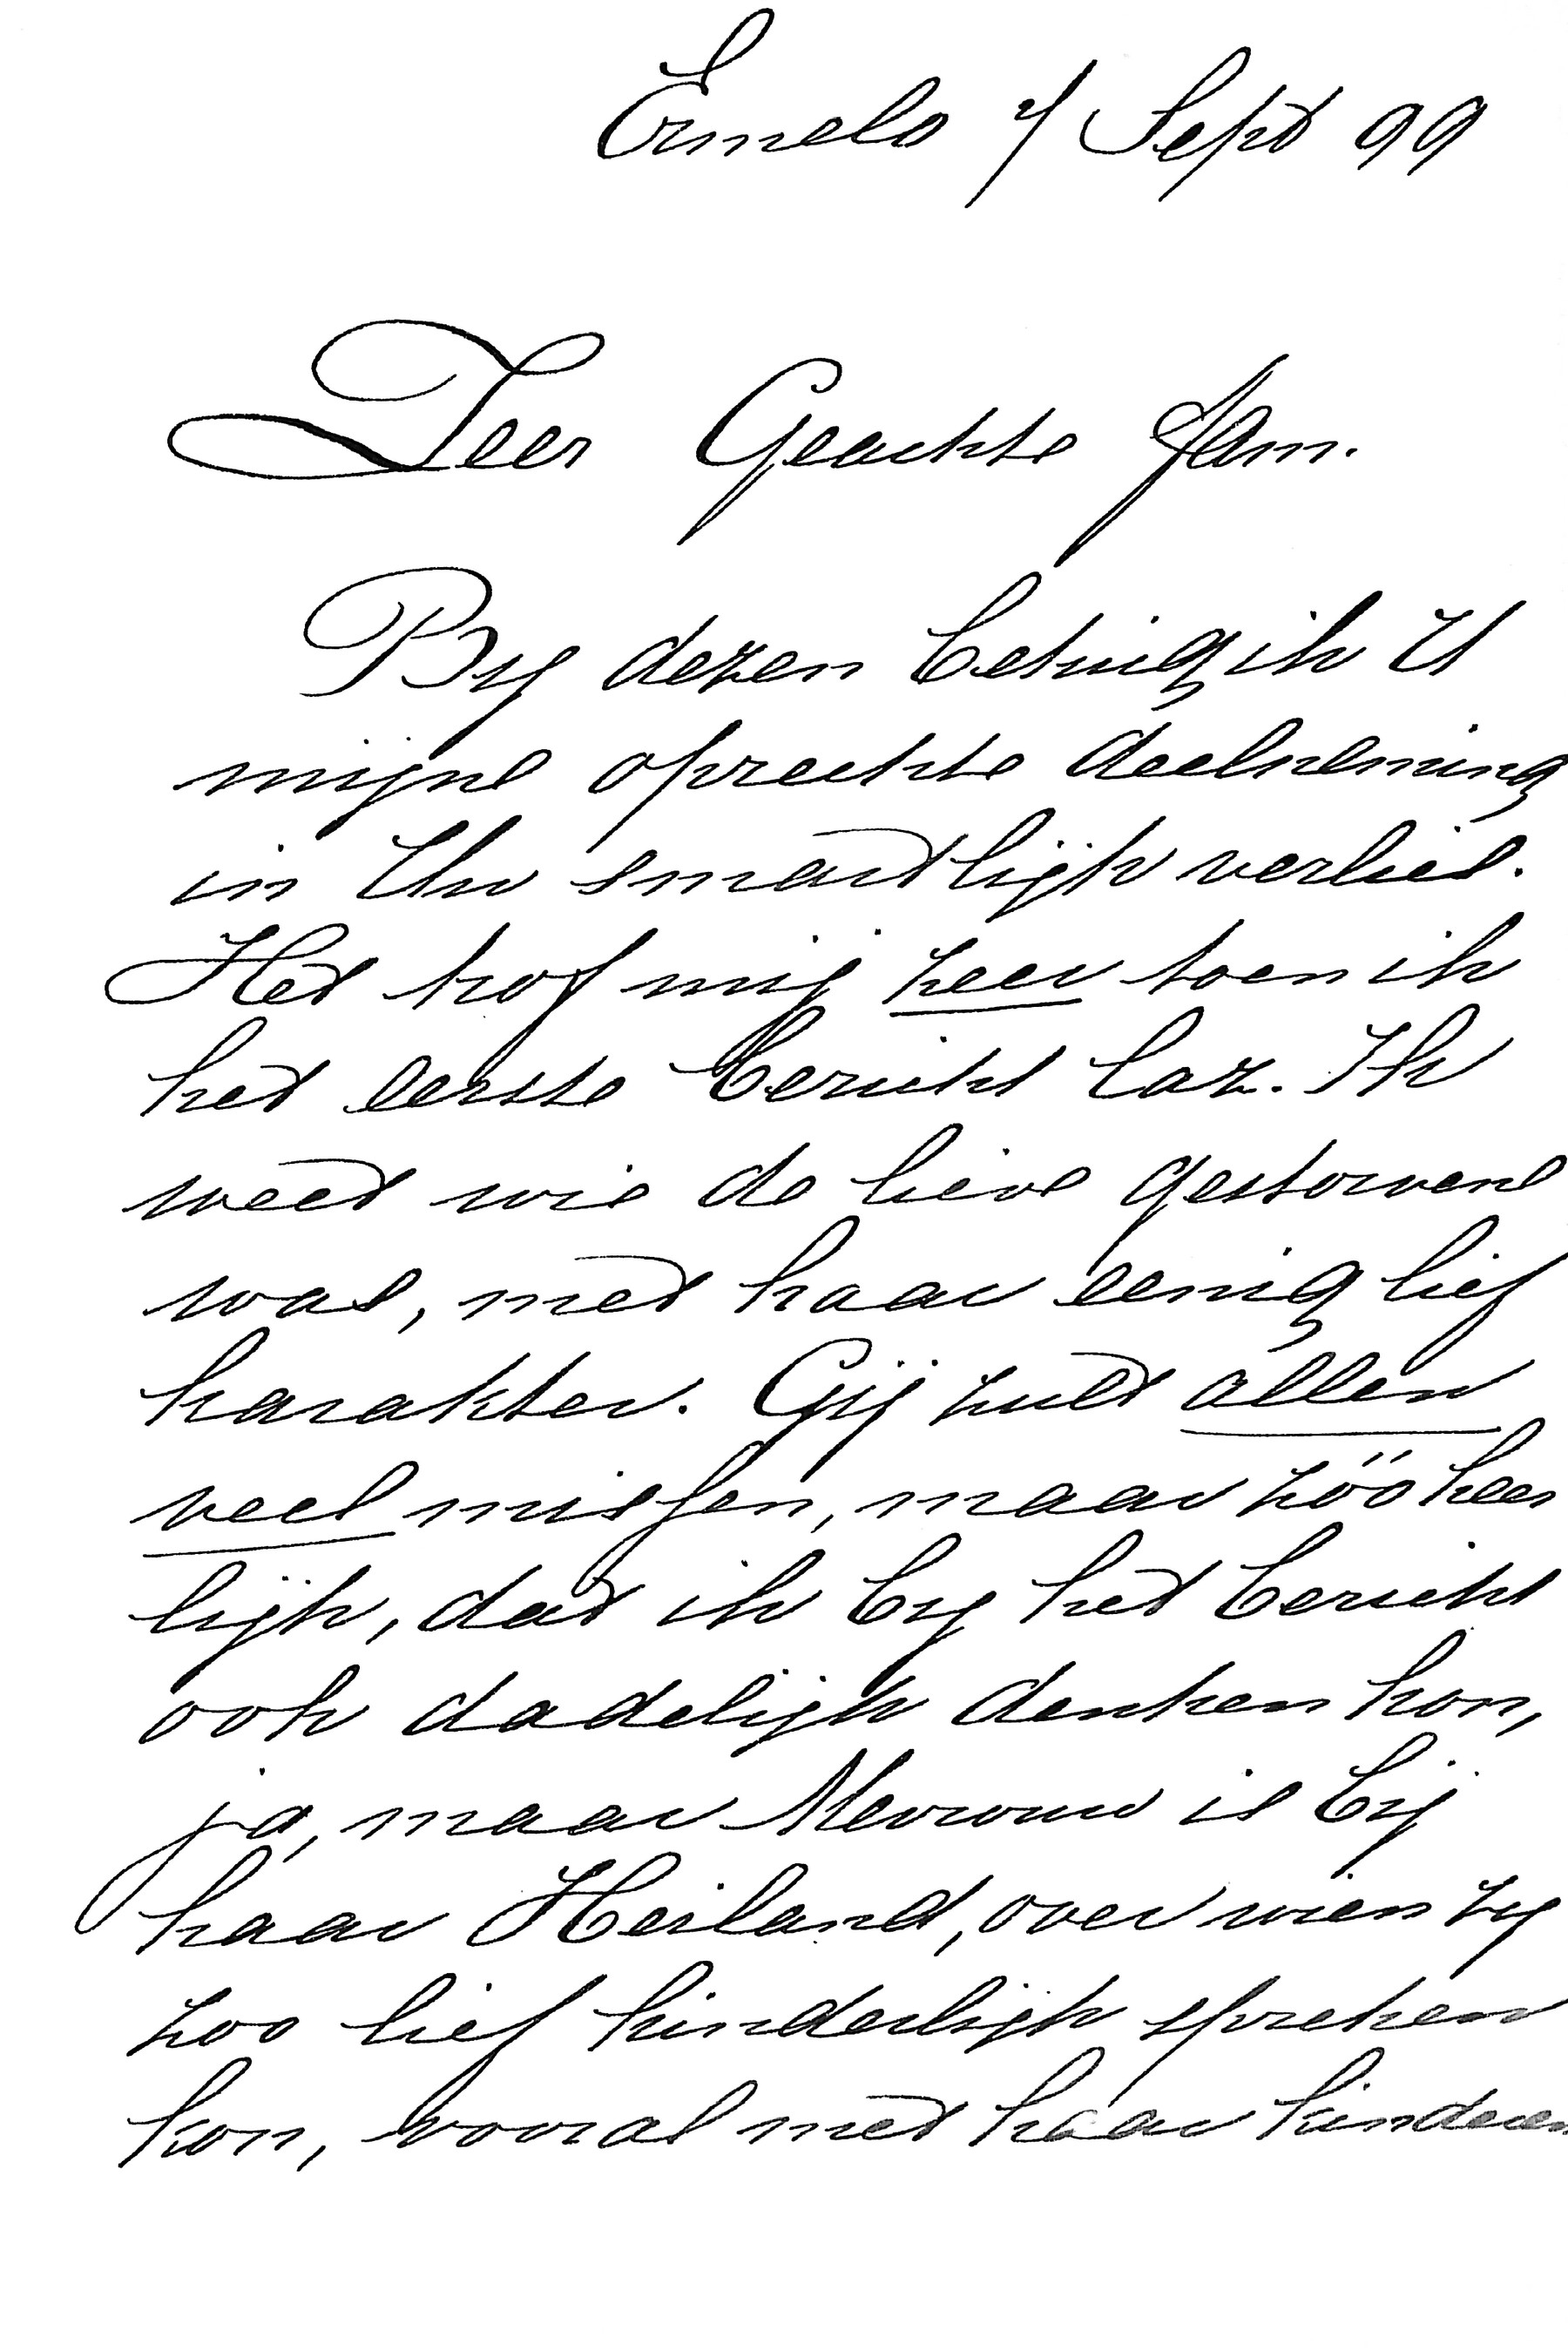 Ermelo 7 Sept 99
Zeer Geachte Fam.
By dezen betuig ik U
mijne oprechte deelneming
in Uw smartlijk verlies.
Het trof mij zeer toen ik
het eerste bericht laz. Ik
weet wie de lieve gestorvene
was, met haar eenig lief
karakter. Gij zult allen
veel missen, maar zóó heer
lijk, dat ik by het bericht
ook dadelijk denken kon,
ja, maar Mevrouw is bij
haar Heiland, over wien zy
zoo lief kinderlijk spreken
kon, vooral met haar kinderen